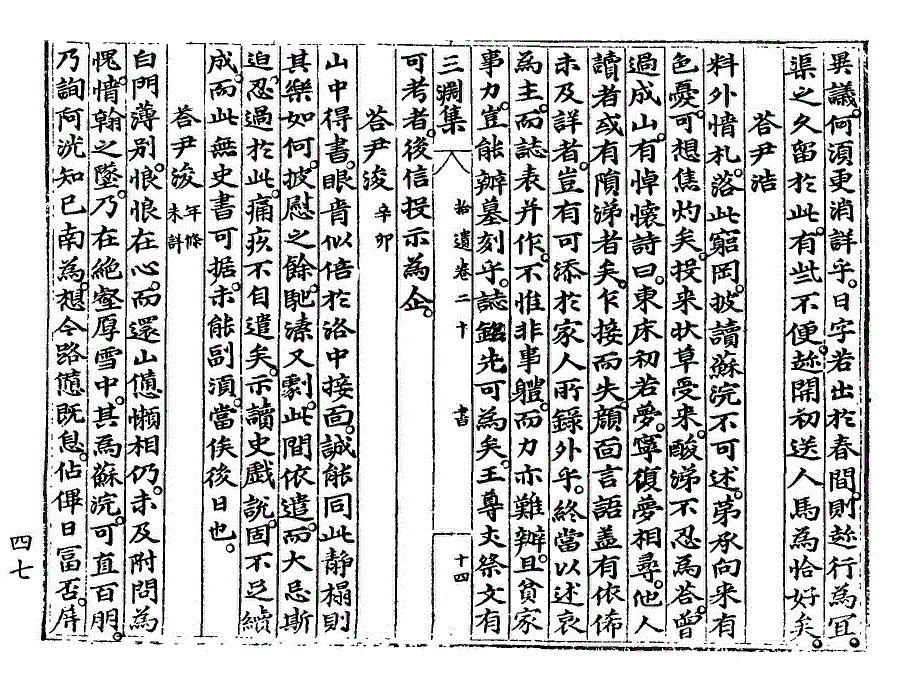 異議。何須更消詳乎。日字若出於春間。則趂行爲宜。
渠之久留於此。有些不便。趂開初送人馬爲恰好矣。
答尹浩
料外情札。落此窮岡。披讀蘇浣不可述。苐承向來有
色憂。可想焦灼矣。投來狀草受來。酸涕不忍爲答。曾
過成山。有悼懷詩曰。東床初若夢。寧復夢相尋。他人
讀者或有隕涕者矣。乍接而失。顔面言語盖有依俙
未及詳者。豈有可添於家人所錄外乎。終當以述哀
爲主。而誌表并作。不惟非事軆。而力亦難辦。且貧家
事力。豈能辦墓刻乎。誌銘先可爲矣。王尊丈祭文有
三淵集 拾遺卷二十 書 十四
可考者。後信投示爲企。
答尹浚 辛卯
山中得書。眼青似倍於洛中接面。誠能同此靜榻則
其樂如何。披慰之餘。馳溱又劇。此間依遣。而大忌斯
迫。忍過於此。痛疚不自遣矣。示讀史戲說。固不足續
成。而此無史書可据。未能副須。當俟後日也。
答尹浚 年條未詳
白門薄别。悢悢在心。而還山憊懶相仍。未及附問爲
愧。情翰之墜。乃在絶壑厚雪中。其爲蘇浣。可直百朋。
乃詢阿洸知已南爲。想今路憊旣息。佔𠌫日富否。屛
四七